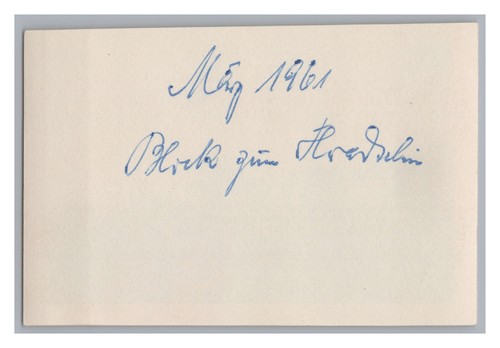 März 1961
Blick zum Hradschin